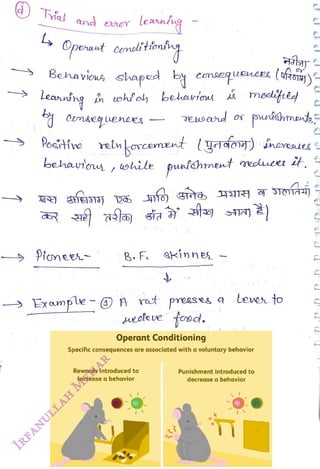 (d) Trial and error learning -
↳ Operant conditioning
→ Behaviour shaped by consequences (परिणाम) नतीजा
→ Learning in which behaviour is modified
by consequences — reward or punishments.
→ Positive reinforcement (पुनर्बलन) increases
behaviour, while punishment reduces it.
→ इस अधिगम एक प्राणि अनेक प्रयास व गलतियाँ
कर सही तरीका अंत में सीख जाता है।
→ Pioneer- B.F. Skinner -
↓
→ Example - ① A rat presses a lever to
receive food.
Operant Conditioning
Specific consequences are associated with a voluntary behavior
Rewards introduced to increase a behavior
Punishment introduced to decrease a behavior